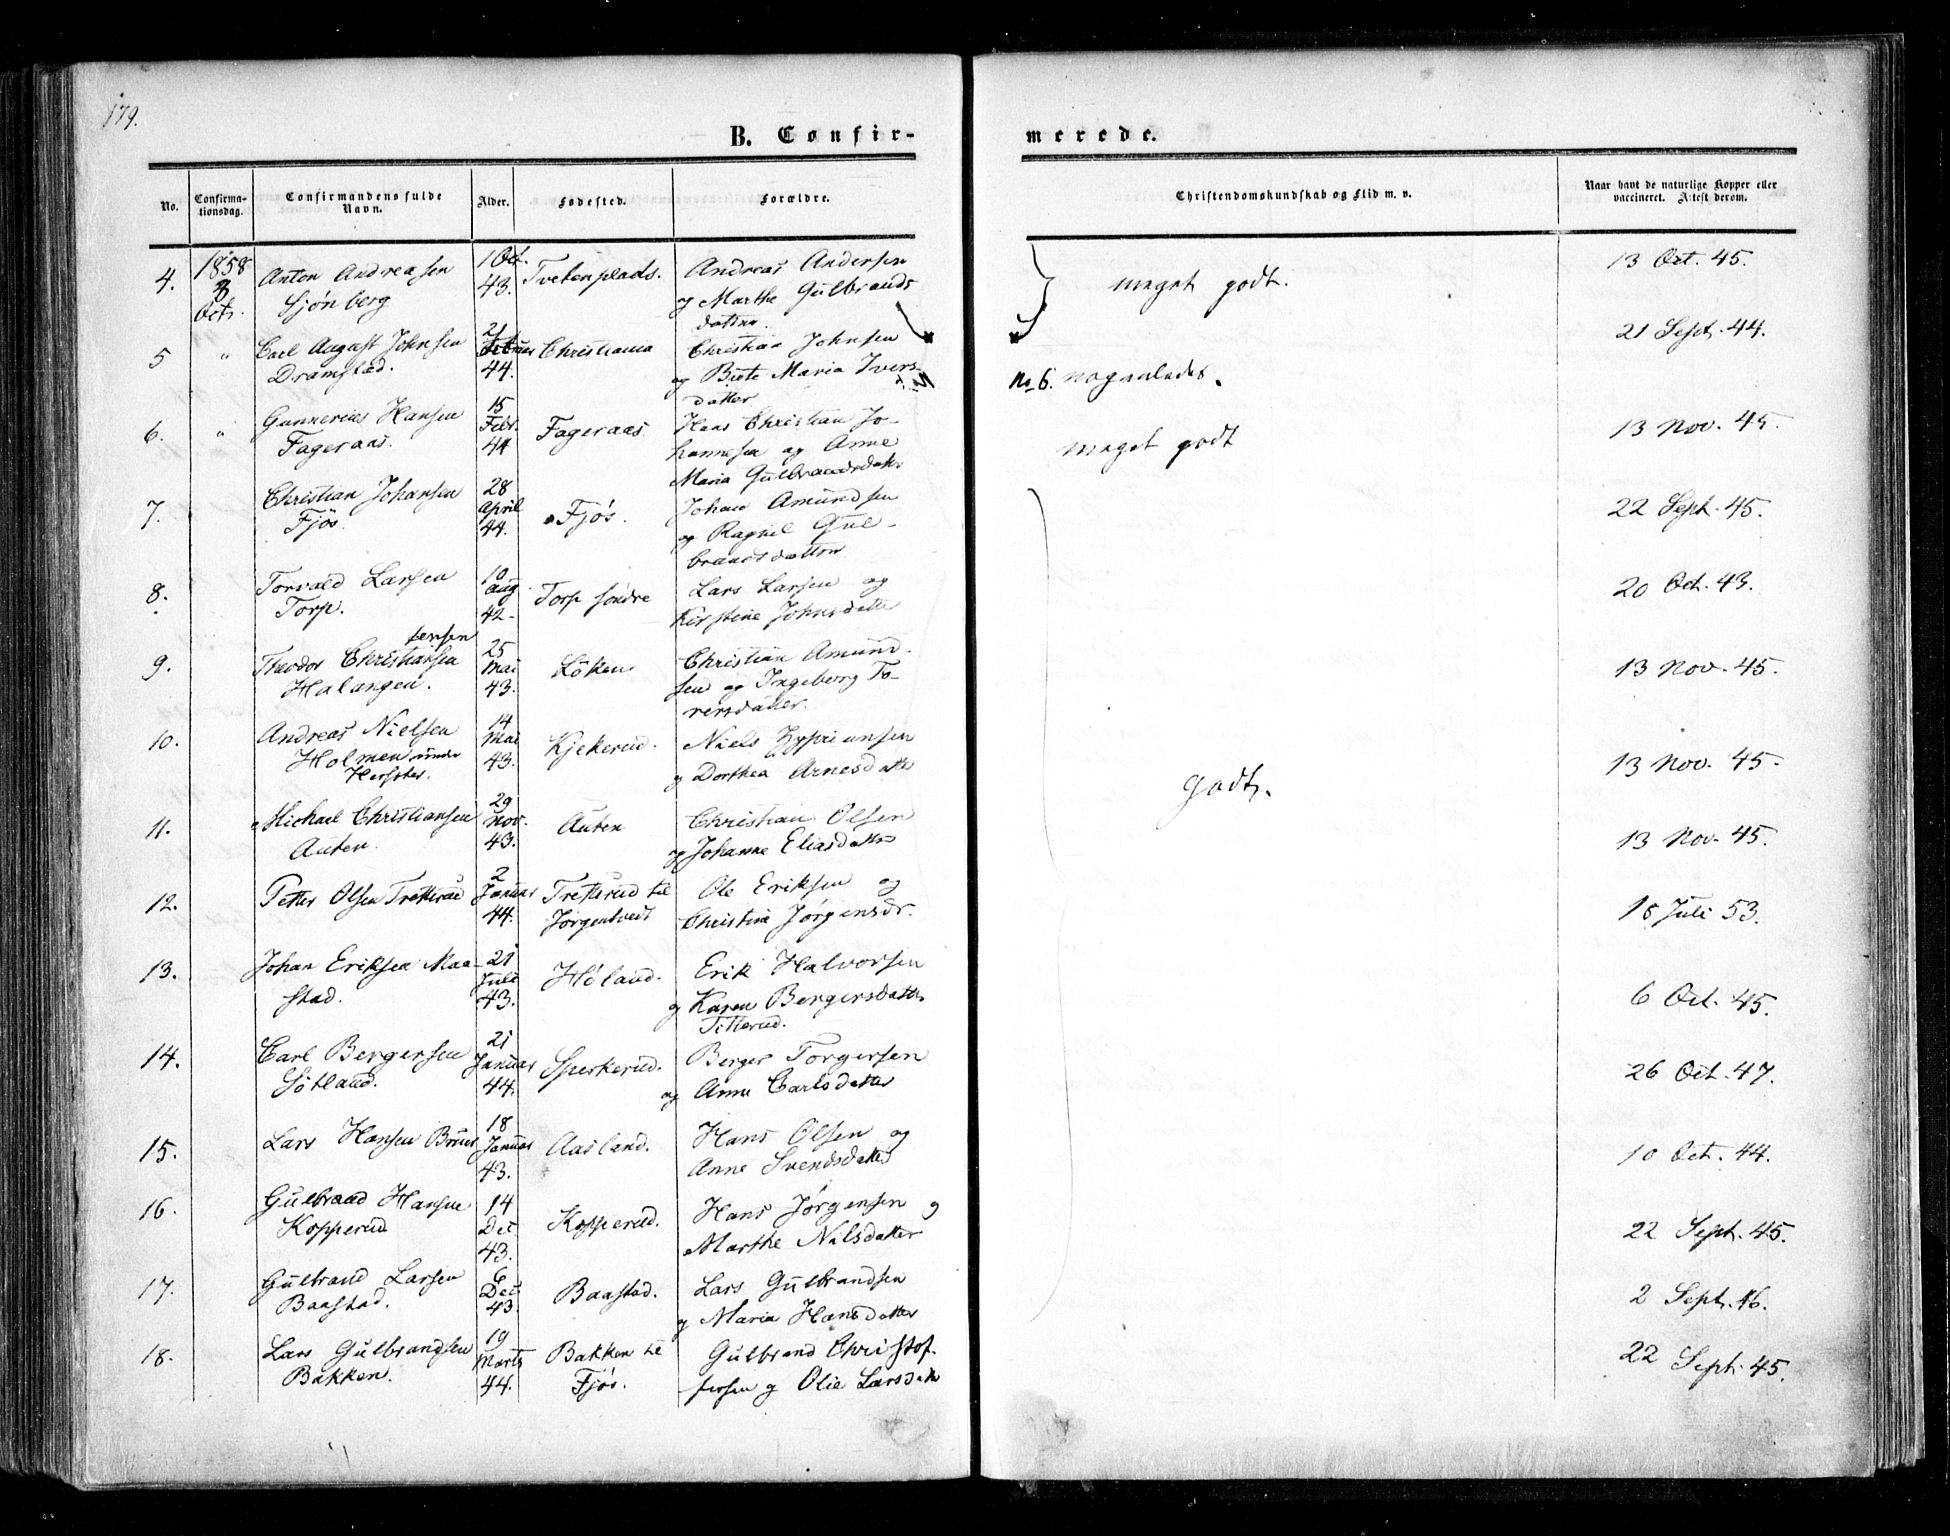 179.
B. Confir-
merede.
No.
Confirma-
tionsdag.
Confirmandens fulde
Navn.
Alder.
Fødested.
Forældre.
Christendomskundskab og Flid m. v.
Naar havt de naturlige Kopper eller
vaccineret. Attest derom.
4.
1858
3
Octr.
Anton Andreasen
Sjønberg
1 Oct.
43.
Tvetenplads.
Andreas Andersen
og Marthe Gulbrands
datter.
meget godt.
13 Oct. 45.
5
"
Carl August Johnsen
Dramstad.
21
Februar
44.
Christiania
Christian Johnsen
og Birte Maria Ivers-
datter
No 6. nogenledes.
21 Sept. 44.
6.
"
Gunnerius Hansen
Fageraas.
15
Febr.
44
Fageraas
Hans Christian Jo-
hannesen og Anne
Maria Gulbrandsdatt.
meget godt
13 Nov. 45.
7.
Christian Johansen
Fjös.
28
April
44.
Fjøs.
Johan Amundsen
og Ragnil Gul-
brandsdatter
22 Sept. 45.
8.
Torvald Larsen
Torp.
10
Aug
42.
Torp søndre
Lars Larsen og
Kirstine Johnsdatter
20 Oct. 43.
9.
tensen
Theodor Christiansen
Halangen.
25
Mai
43.
Löken
Christian Amund-
sen og Ingeborg To-
rersdatter.
13 Nov. 45.
10.
Andreas Nielsen
Holmen under
14
Mai
43.
Kjekerud.
Niels Zypriansen
og Dorthea Arnesdatter
13 Nov. 45.
godt.
11.
Michael Christiansen
Auten.
29
Nov.
43.
Auten
Christian Olsen
og Johanne Eliasdatter
13 Nov. 45.
12.
Petter Olsen Tretterud
2
Januar
44.
Tretterud til
Jørgentvedt
Ole Eriksen og
Christine Jørgensdr.
Juli 53.
13.
Johan Eriksen Maa-
stad.
21
Juli
43.
Høland.
Erik Halvorsen
og Karen Bergersdatter
Titterud.
6 Oct. 45.
14.
Carl Bergersen
Søtland.
21
Januar
44.
Sperkerud.
Berger Torgersen
og Anne Carlsdatter
26 Oct. 47.
15.
Lars Hansen Bruer
18
Januar
43.
Aasland.
Hans Olsen og
Anne Svendsdatter
10 Oct. 44.
16.
Gulbrand Hansen
Kopperud
14
Dec
43.
Kopperud.
Hans Jørgensen og
Marthe Nilsdatter
22 Sept. 45.
17.
Gulbrand Larsen
Baastad.
6
Dec
43.
Baastad.
Lars Gulbrandsen
og Maria Hansdatter
2 Sept. 46.
18.
Lars Gulbrandsen
Bakken.
19
Marts
44.
Bakken til
Fjøs.
Gulbrand Christof-
fersen og Olie Larsdatt
22 Sept. 45.